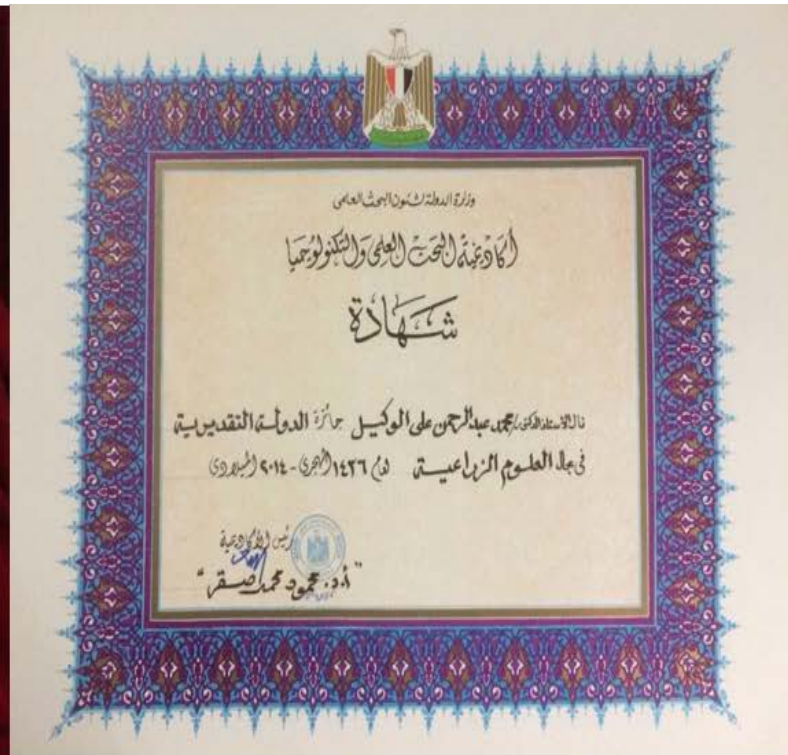 وزارة الدولة لشئون البحث العلمى
أكاديمية البحث العلمى والتكنولوجيا
شهادة
نال الأستاذ الدكتور/ محمد عبد الرحمن على الوكيل جائزة الدولة التقديرية
فى مجال العلوم الزراعية لعام ١٤٣٦ الهجرى - ٢٠١٤ الميلادى
رئيس الأكاديمية
"أ.د. محمود محمد صقر"